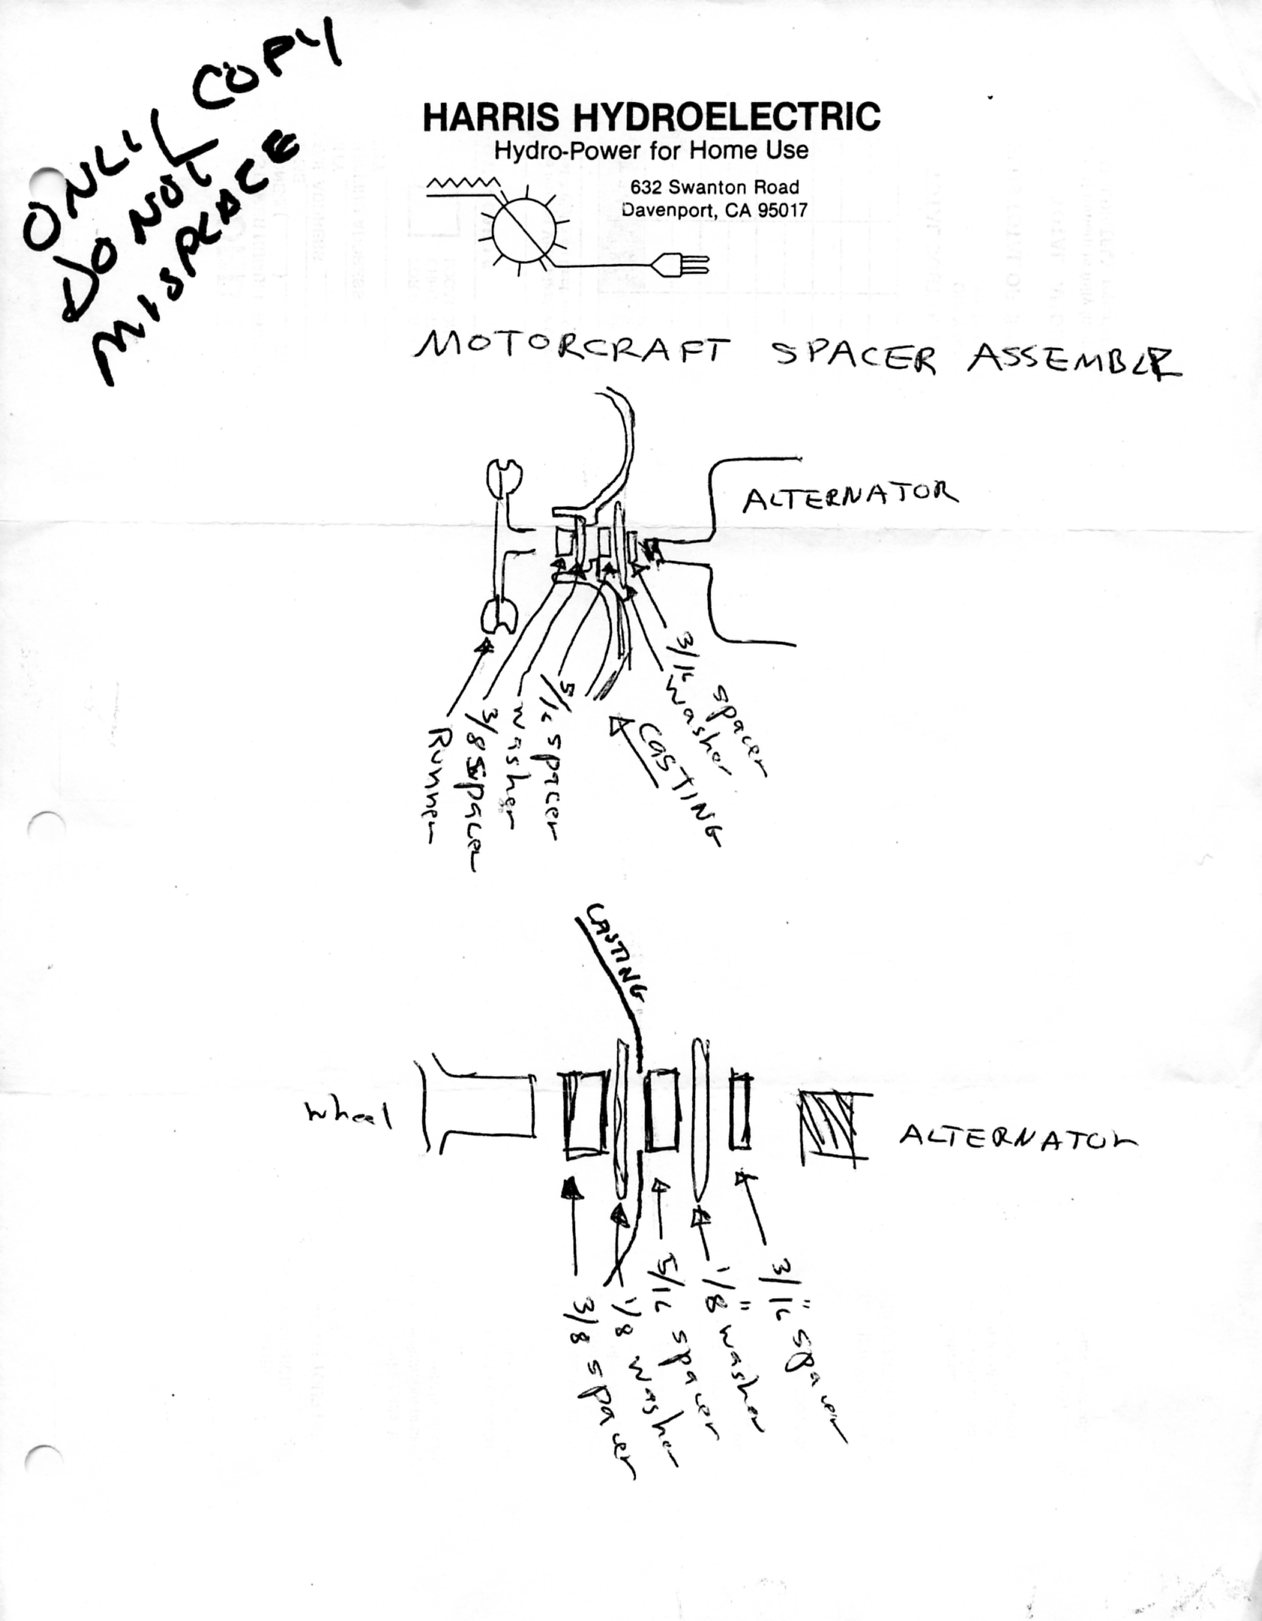 ONLY COPY
DO NOT
MISPLACE
HARRIS HYDROELECTRIC
Hydro-Power for Home Use
632 Swanton Road
Davenport, CA 95017
MOTORCRAFT SPACER ASSEMBLY
ALTERNATOR
Runner
3/8 spacer
washer
5/16 spacer
CASTING
washer
3/16 spacer
CASTING
wheel
ALTERNATOR
3/8 spacer
1/8 washer
5/16 spacer
1/8" washer
3/16" spacer